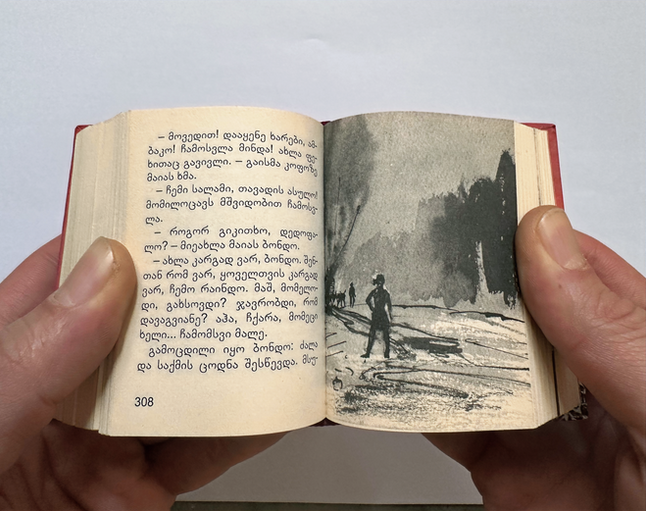 – მოვედით! დააყენე ხარები, ამ-
ბაკო! ჩამოსვლა მინდა! ახლა ფე-
ხითაც გავივლი. – გაისმა კოფოზე
მაიას ხმა.
– ჩემი სალამი, თავადის ასულო!
მომილოცავს მშვიდობით ჩამოსვ-
ლა.
– როგორ გიკითხო, დედოფა-
ლო? – მიეახლა მაიას ბონდო.
– ახლა კარგად ვარ, ბონდო. შენ-
თან რომ ვარ, ყოველთვის კარგად
ვარ, ჩემო რაინდო. მაშ, მომელო-
დი, გახსოვდი? ჯავრობდი, რომ
დავაგვიანე? აჰა, ჩქარა, მომეცი
ხელი... ჩამომსვი მალე.
გამოცდილი იყო ბონდო: ძალა
და საქმის ცოდნა შესწევდა. მსუ-
308